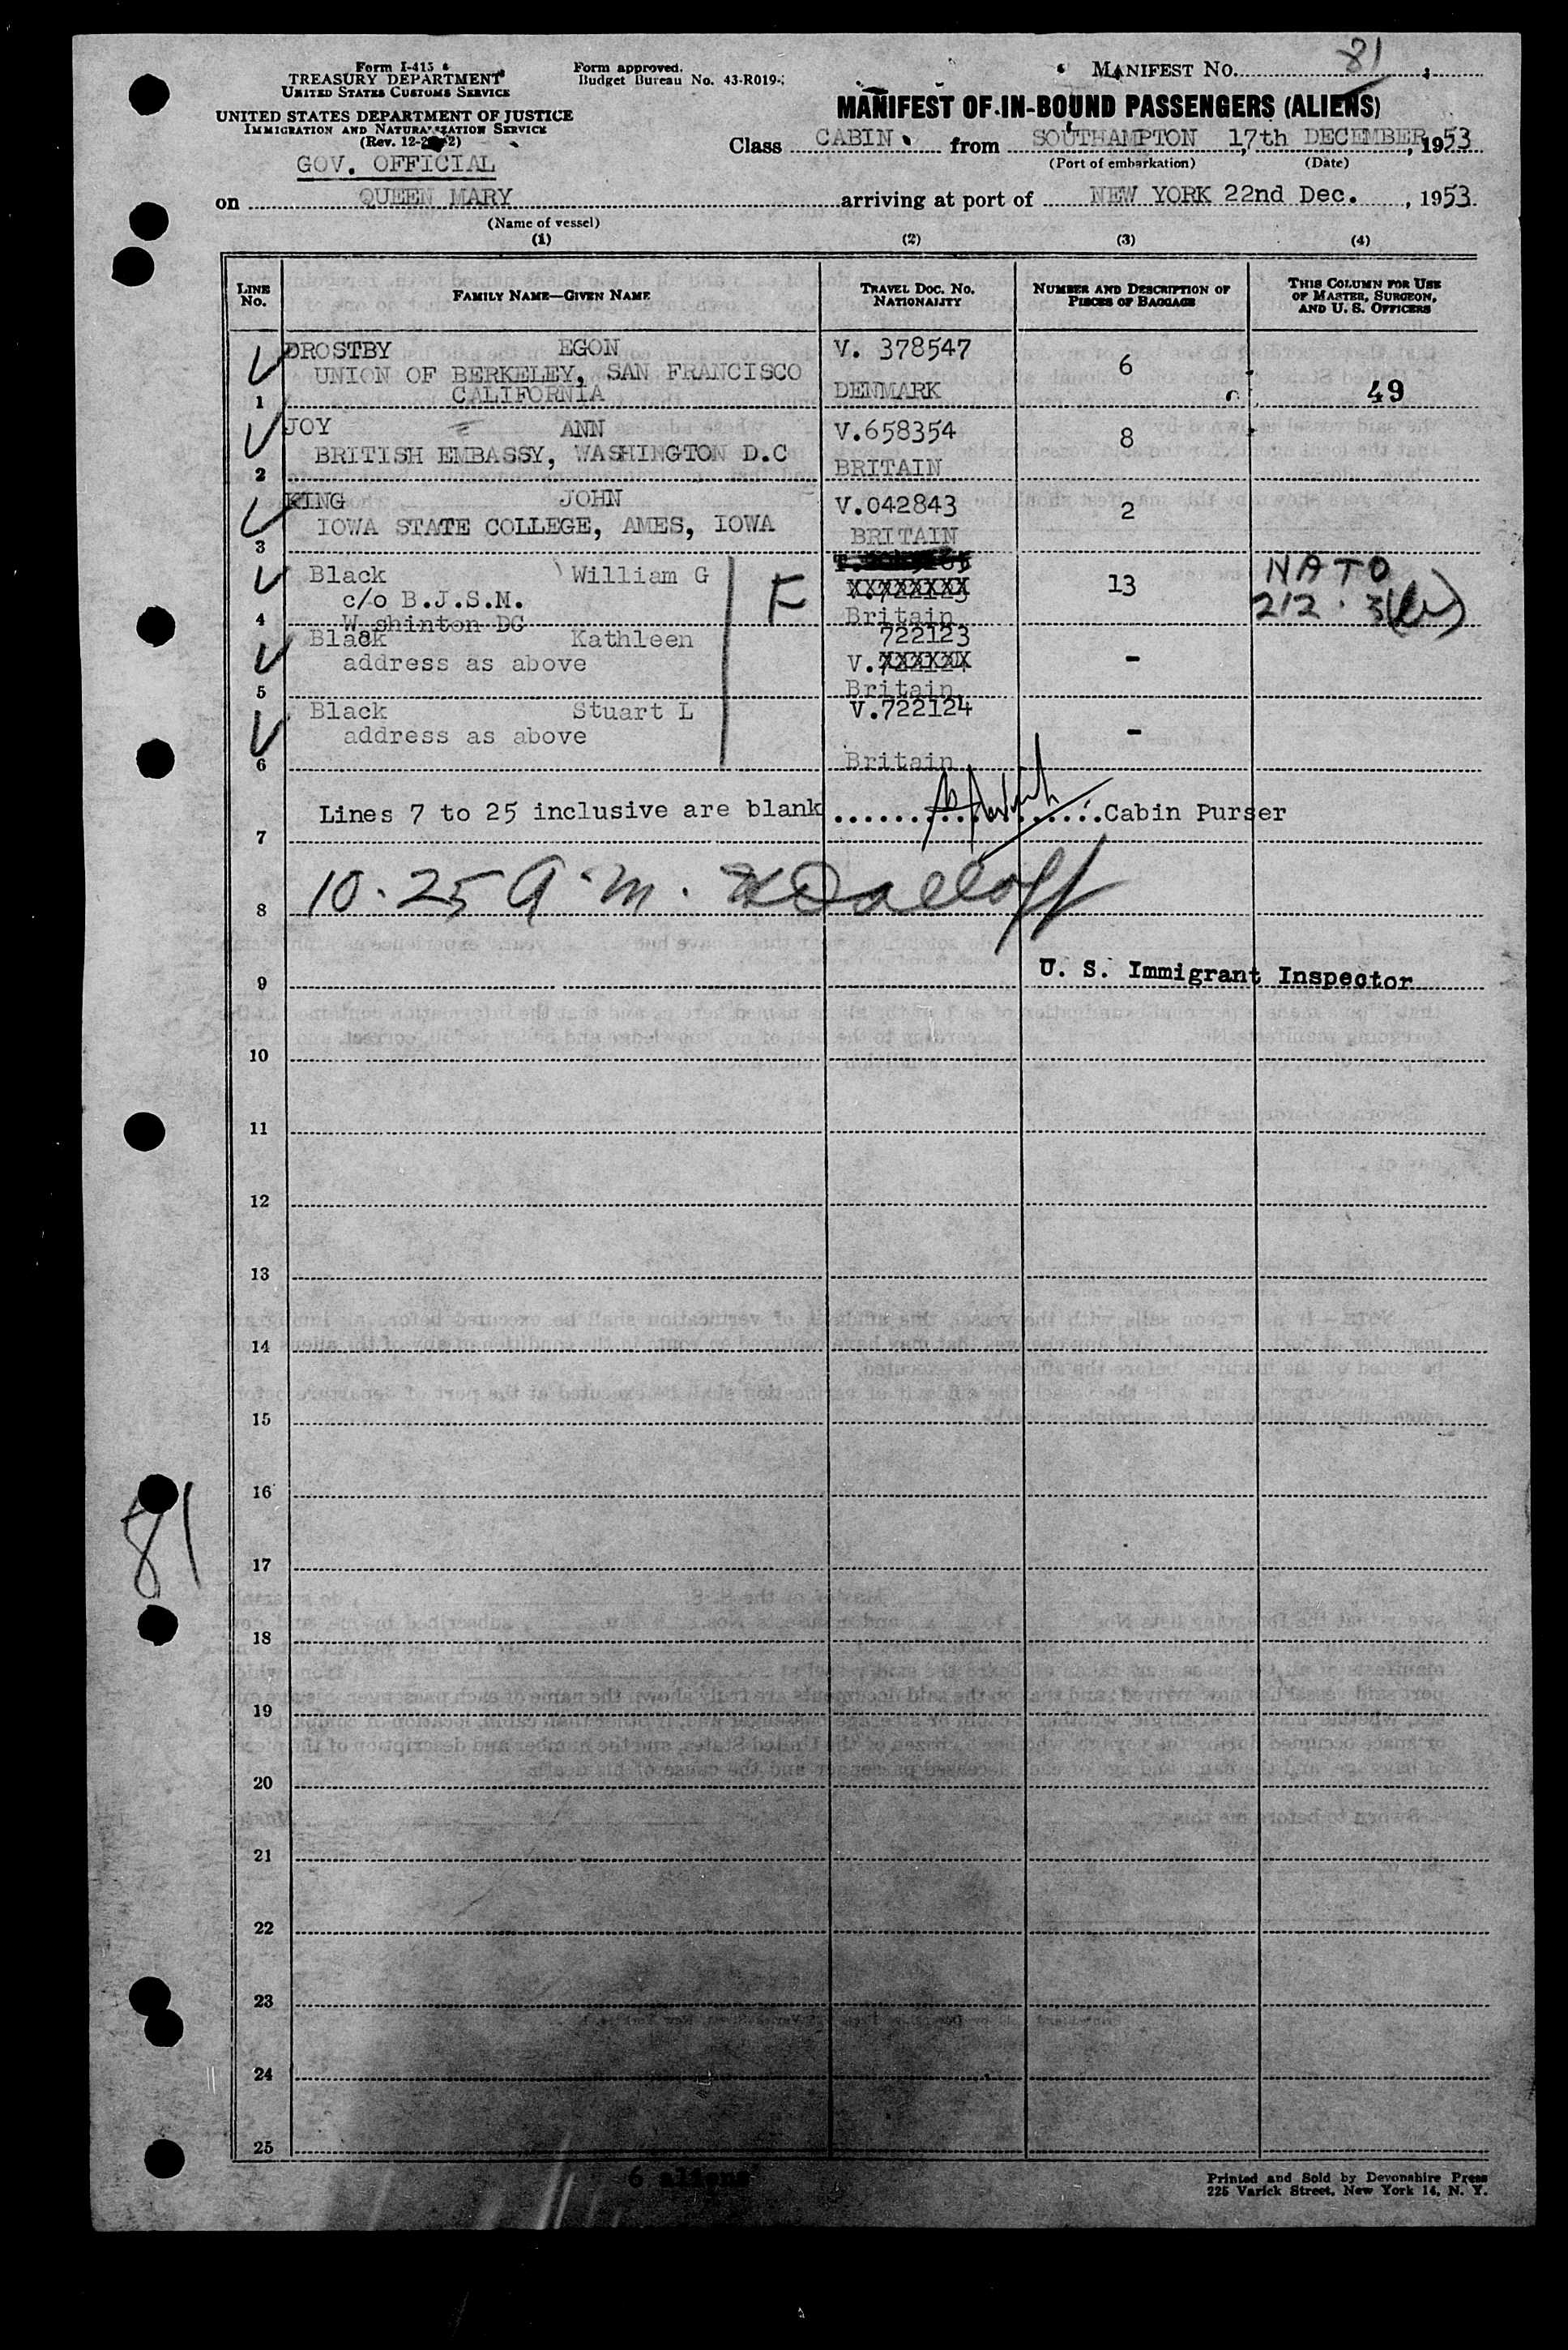 Form I-415
TREASURY DEPARTMENT
UNITED STATES CUSTOMS SERVICE
UNITED STATES DEPARTMENT OF JUSTICE
IMMIGRATION AND NATURALIZATION SERVICE
(Rev. 12-
GOV. OFFICIAL
Form approved.
Budget Bureau No. 43-R019-
MANIFEST No. 81
MANIFEST OF IN-BOUND PASSENGERS (ALIENS)
Class CABIN from SOUTHAMPTON 17th DECEMBER, 1953
(Port of embarkation) (Date)
on QUEEN MARY arriving at port of NEW YORK 22nd Dec. , 1953
(Name of vessel)
(1) (2) (3) (4)
LINE No. FAMILY NAME—GIVEN NAME TRAVEL DOC. NO. NATIONALITY NUMBER AND DESCRIPTION OF PIECES OF BAGGAGE THIS COLUMN FOR USE OF MASTER, SURGEON, AND U. S. OFFICERS
DROSTBY EGON V. 378547
UNION OF BERKELEY, SAN FRANCISCO 6
1 CALIFORNIA DENMARK 49
JOY ANN V.658354 8
2 BRITISH EMBASSY, WASHINGTON D.C BRITAIN
KING JOHN V.042843 2
3 IOWA STATE COLLEGE, AMES, IOWA BRITAIN
Black William G F XXXXXXXX 13 NATO
c/o B.J.S.M. 212.3(
4 Washinton DC Britain
Black Kathleen 722123
address as above V.XXXXXX -
5 Britain
Black Stuart L V.722124
address as above -
6 Britain
Lines 7 to 25 inclusive are blank Cabin Purser
7
8 10.25 a.m.
U. S. Immigrant Inspector
9
10
11
12
13
14
15
16
81
17
18
19
20
21
22
23
24
25
6 aliens
Printed and Sold by Devonshire Press
225 Varick Street, New York 14, N. Y.